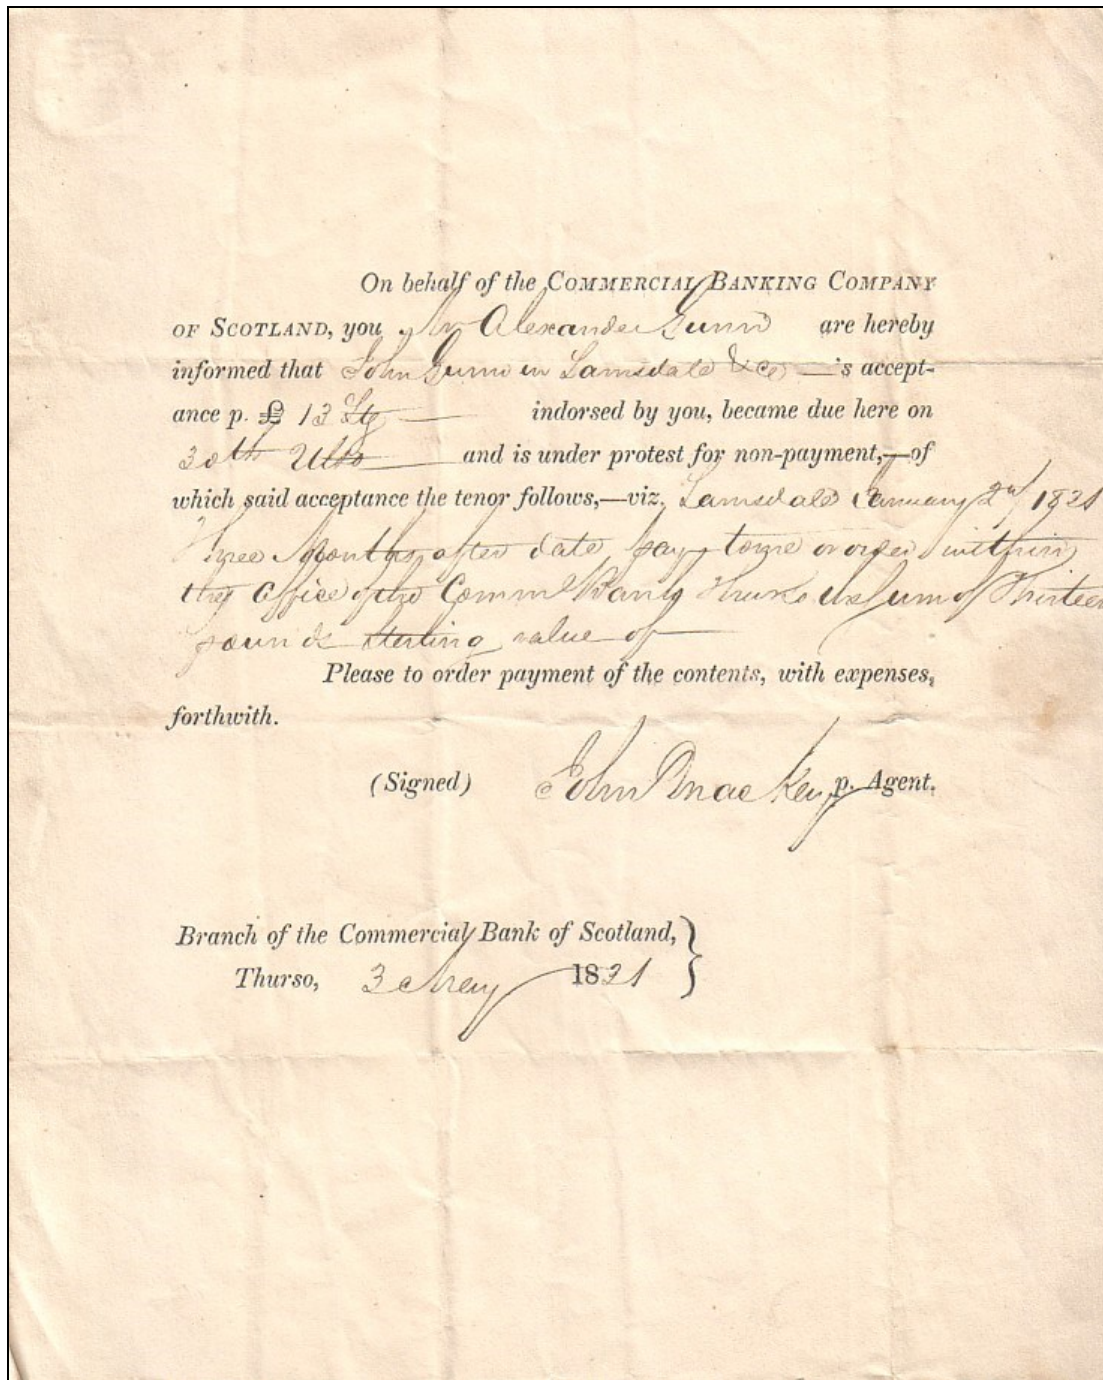 On behalf of the COMMERCIAL BANKING COMPANY
OF SCOTLAND, you Mr Alexander Gunn are hereby
informed that John Gunn in Lamsdale & Co 's accept-
ance p. £ 13 Stg indorsed by you, became due here on
30th Ulto and is under protest for non-payment,—of
which said acceptance the tenor follows,—viz. Lamsdale January 2nd 1821
Three Months after date pay to me or order within
the Office of the Comml Bank Thurso the Sum of Thirteen
pounds sterling value of
Please to order payment of the contents, with expenses,
forthwith.
(Signed) John Mackay p. Agent.
Branch of the Commercial Bank of Scotland,
Thurso, 3 May 1821